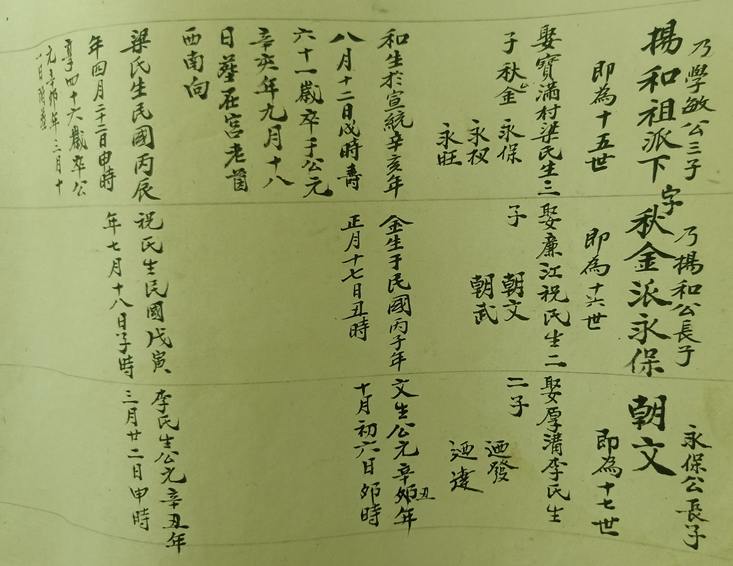 乃學敏公三子
楊和祖派下
即為十五世
娶寶滿村梁氏生三
子秋金 永保
永权
永旺
和生於宣統辛亥年
八月十二日戌時壽
六十一歲卒于公元
辛亥年九月十八
日葬在宫老箇
西南向
梁氏生民國丙辰
年四月二十二日申時
享四十六歲卒公
元辛卯年三月十
一日附葬
乃楊和公長子
字秋金派永保
即為十六世
娶廉江祝氏生二
子
朝文
朝武
金生于民國丙子年
正月十七日丑時
祝氏生民國戊寅
年七月十八日子時
永保公長子
朝文
即為十七世
娶厚溝李氏生
二子
迺發
迺達
文生公元辛卯丑年
十月初六日卯時
李氏生公元辛丑年
三月廿二日申時